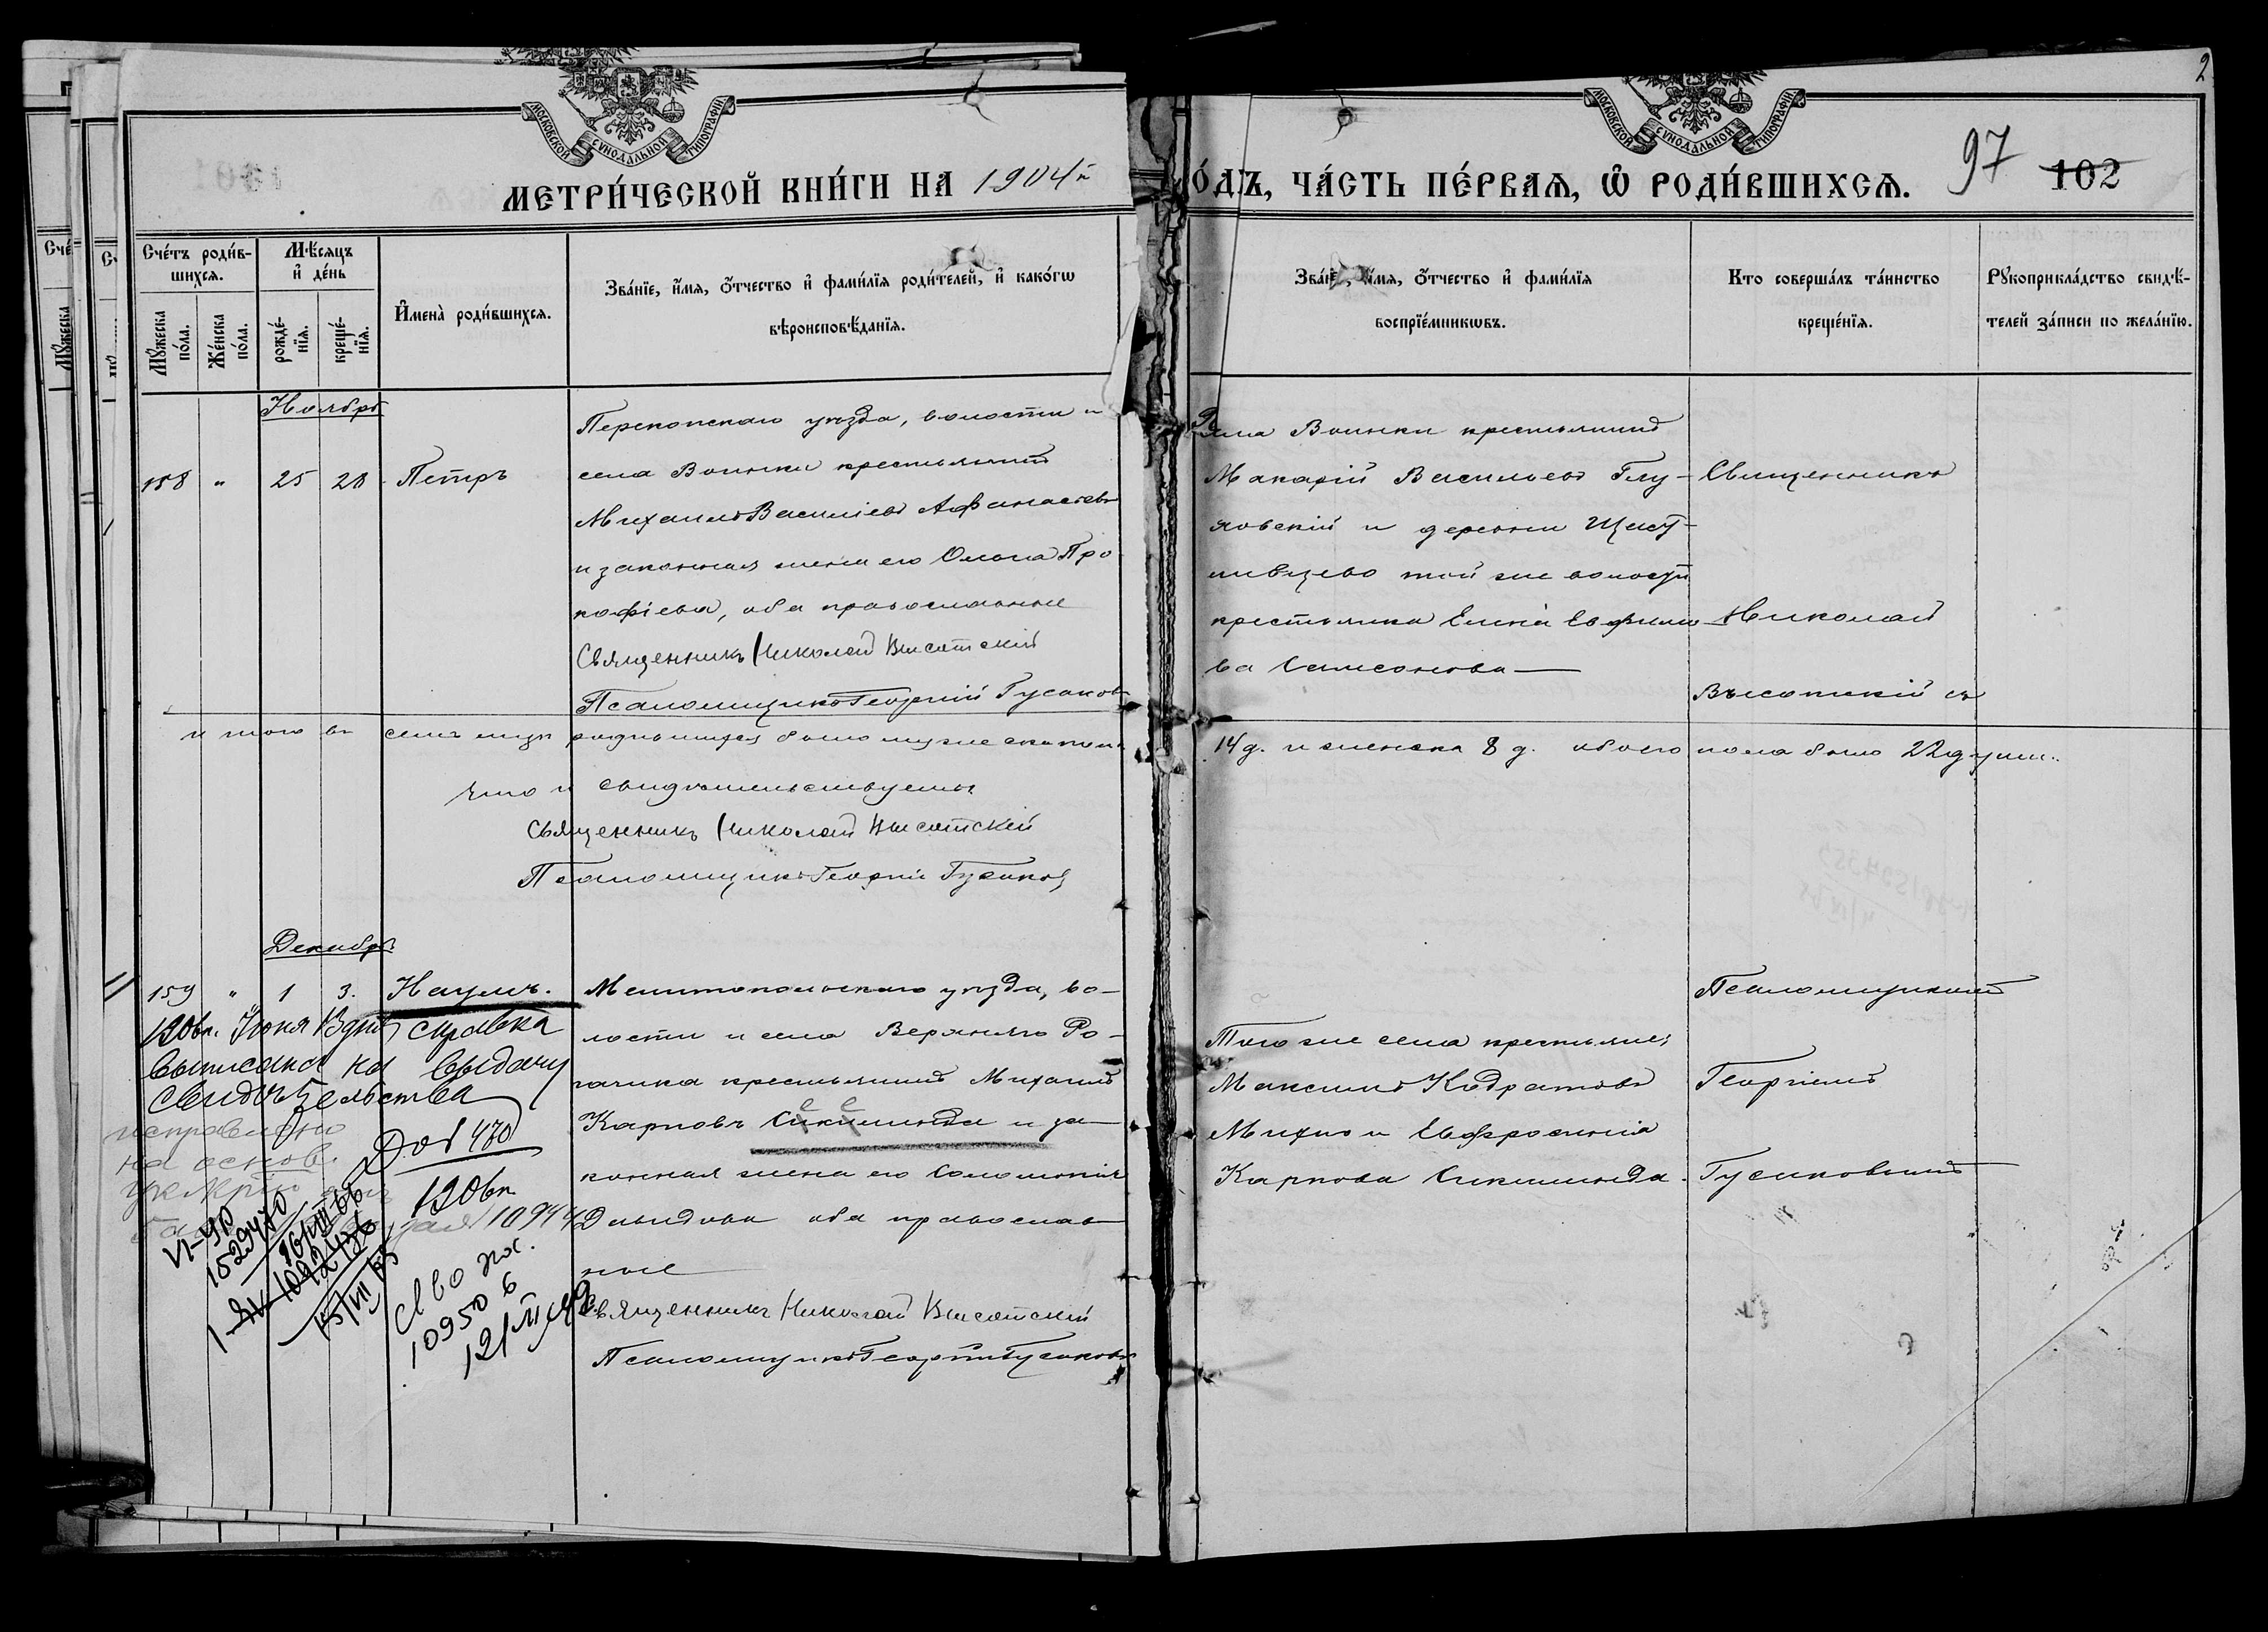 МОСКОВСКОЙ СУНОДАЛЬНОЙ ТИПОГРАФІИ
МОСКОВСКОЙ СУНОДАЛЬНОЙ ТИПОГРАФІИ
2
МЕТРИ́ЧЕСКОЙ КНИ́ГИ НА 1904й
О́ДЪ, ЧА́СТЬ ПЕ́РВАѦ, Ѡ҆ РОДИ́ВШИХСѦ. 97 102
Сче́тъ роди́в-
шихсѧ.
Мꙋ́жеска
по́ла.
Же́нска
по́ла.
Мѣ́сѧцъ
и҆ де́нь
рожде́-
нїѧ.
креще́-
нїѧ.
И҆мена̀ роди́вшихсѧ.
Зва́нїе, и҆́мѧ, ѻ҆́тчество и҆ фами́лїѧ роди́телей, и҆ како́гѡ
вѣроисповѣ́данїѧ.
Зва́нїе, и҆́мѧ, ѻ҆́тчество и҆ фами́лїѧ
воспрїе́мникѡвъ.
Кто соверша́лъ та́инство
креще́нїѧ.
Рꙋкоприкла́дство свидѣ́-
телей за́писи по жела́нїю.
Ноябрь
158 " 25 28 Петръ
Перекопскаго уѣзда, волости и
села Воинки крестьянинъ
Михаилъ Васильевъ Афанасьевъ
и законная жена его Ольга Про
кофіева, оба православные
Священникъ Николай Высотскій
Псаломщикъ Георгій Гусаковъ
села Воинки крестьянинъ
Макарій Васильевъ Глу-
ховскій и деревни
той же волости
крестьянка Елена Евфимо
ва Самсонова
Священникъ
Николай
Высотскій съ
Итого въ семъ мѣс. родившихся было мужеска пола
14 д. и женска 8 д. обоего пола было 22 души.
Что и свидѣтельствуемъ
Священникъ Николай Высотскій
Псаломщикъ Георгій Гусаковъ
Декабрь
159 " 1 3. Наумъ.
Мелитопольскаго уѣзда, во-
лости и села Верхняго Ро-
гачика крестьянинъ Михаилъ
Карповъ Сикиинда и за-
конная жена его Соломонія
Давидова оба православ
ные
Священникъ Николай Высотскій
Псаломщикъ Георгій Гусаковъ
Того же села крестьяне:
Максимъ Кодратовъ
Михно и Евфросинія
Карпова
Псаломщикомъ
Георгіемъ
Гусаковымъ
1906г. Июня 13 дня справка
выписана на выдачу
свидѣтельства
исправлено
на основ.
Дов 470
1906г
10944
VI-ЯР
1529470
16/VIII 66
1092426
15/VII
св во
109506